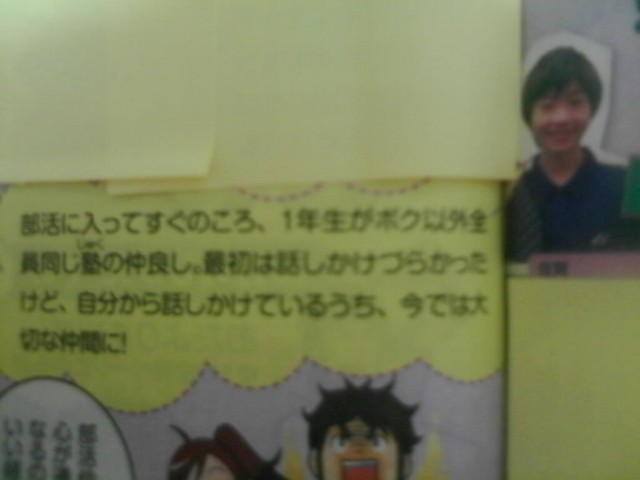 部活に入ってすぐのころ、1年生がボク以外全
員同じ塾の仲良し。最初は話しかけづらかった
けど、自分から話しかけているうち、今では大
切な仲間に!